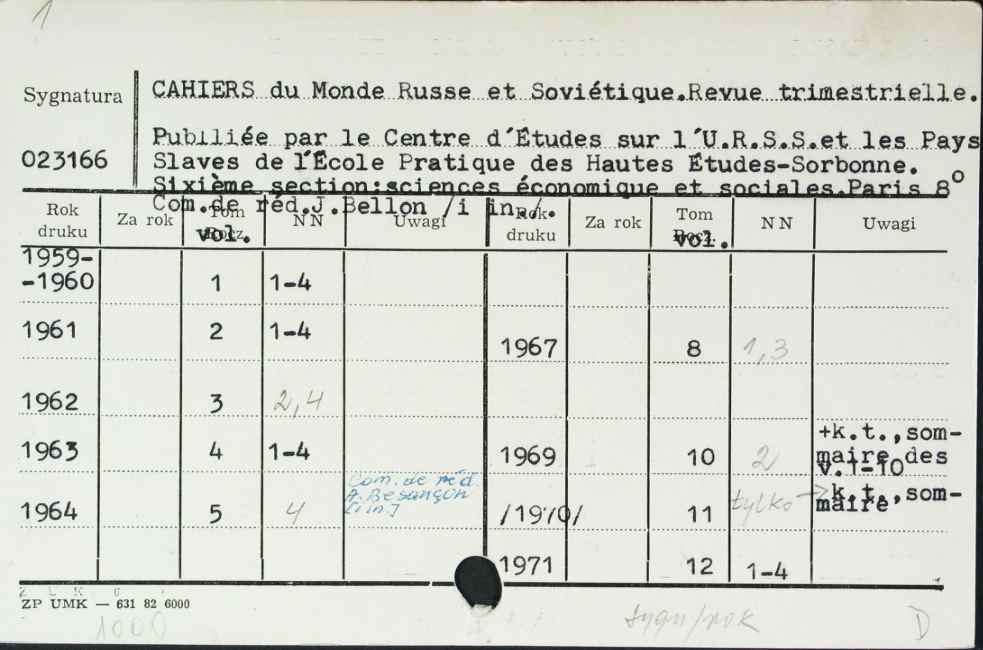 1
Sygnatura
CAHIERS du Monde Russe et Soviétique.Revue trimestrielle.
023166
Publliée par le Centre d'Études sur l'U.R.S.S.et les Pays
Slaves de l'École Pratique des Hautes Études-Sorbonne.
Sixième section:sciences économique et sociales.Paris 8°
Com.de réd.J.Bellon /i in./.
Rok druku Za rok Tom Rocz. vol. NN Uwagi Rok druku Za rok Tom Rocz. vol. NN Uwagi
1959-
-1960 1 1-4
1961 2 1-4
1967 8 1,3
1962 3 2,4
1963 4 1-4
1969 10 2 +k.t.,som-
maire des
v.1-10
1964 5 4 Com. de réd.
A. Besançon
[i in.]
/1970/ 11 tylko → k.t.,som-
maire
1971 12 1-4
ZP UMK — 631 82 6000
1000
sygn/rok
D